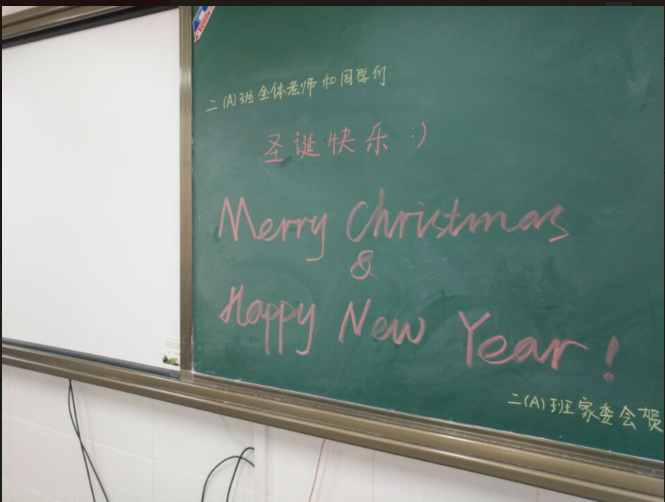 二(A)班全体老师和同学们
圣诞快乐 :)
Merry Christmas
&
Happy New Year!
二(A)班家委会贺